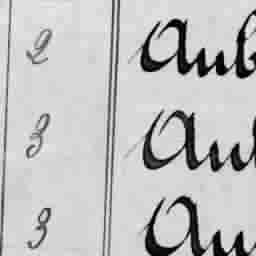 2 Aub
3 Au
3 Au